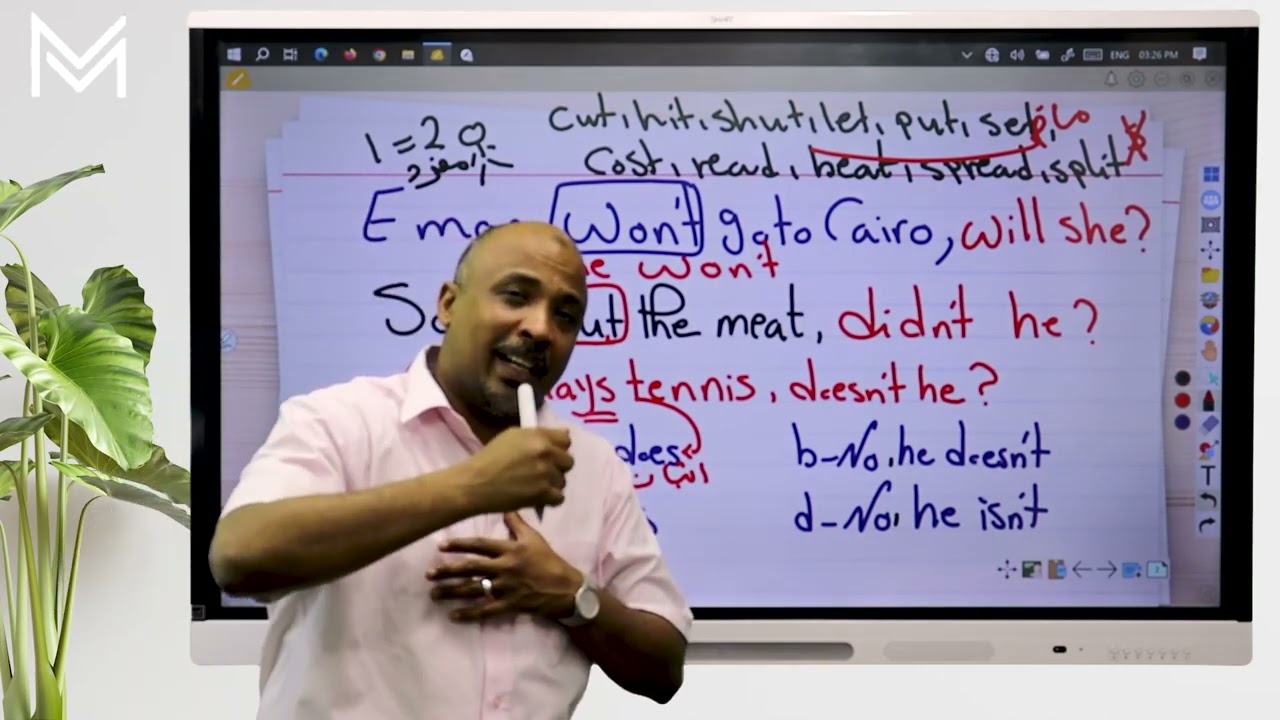 SMART
ENG 03:26 PM
cut, hit, shut, let, put, set,
1 = 2 Q.
cost, read, beat, spread, split
Won't go to Cairo, will she?
won't
the meat, didn't he?
tennis, doesn't he?
does
b-No, he doesn't
d-No, he isn't
T